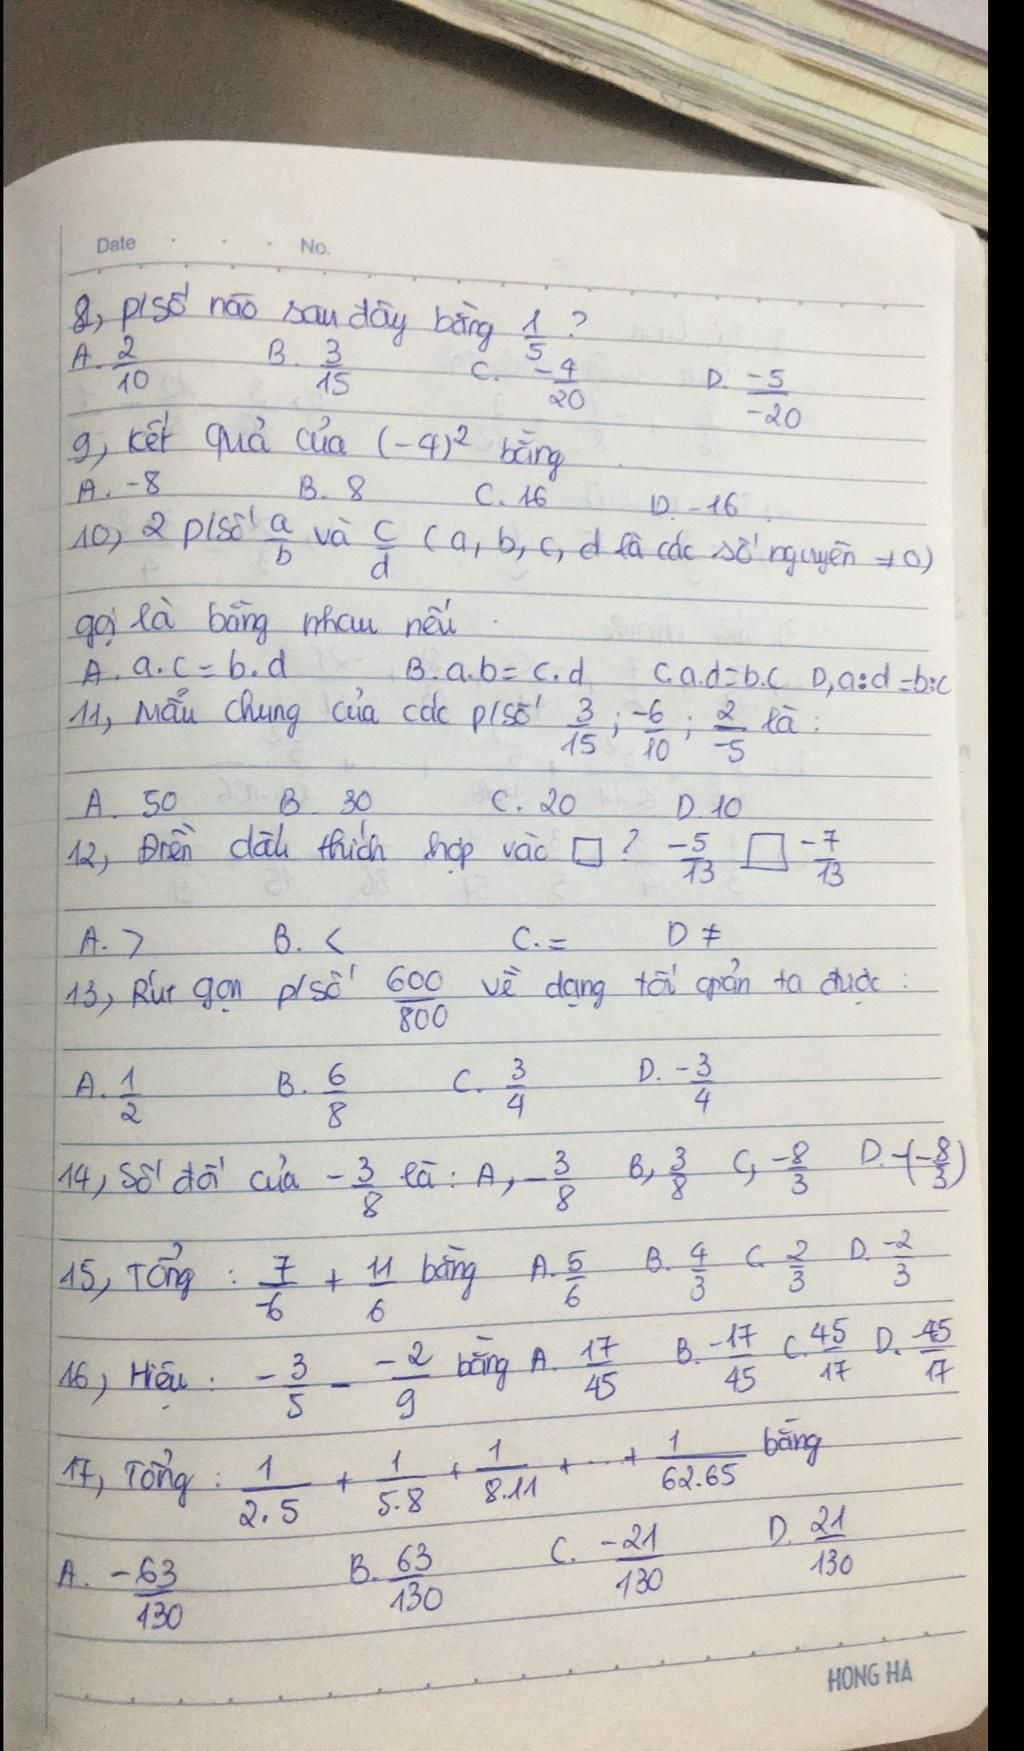 Date No.
8, p/số nào sau đây bằng 1/5 ?
A. 2/10 B. 3/15 C. -4/20 D. -5/-20
9, Kết quả của (-4)² bằng
A. -8 B. 8 C. 16 D. -16
10, 2 p/số a/b và c/d (a, b, c, d là các số nguyên ≠ 0)
gọi là bằng nhau nếu
A. a.c = b.d B. a.b = c.d C. a.d = b.c D, a:d = b:c
11, Mẫu chung của các p/số 3/15 ; -6/10 ; 2/-5 là :
A. 50 B. 30 C. 20 D. 10
12, Điền dấu thích hợp vào □ ? -5/13 □ -7/13
A. > B. < C. = D ≠
13, Rút gọn p/số 600/800 về dạng tối giản ta được :
A. 1/2 B. 6/8 C. 3/4 D. -3/4
14, Số đối của -3/8 là : A, -3/8 B, 3/8 C, -8/3 D. -(-8/3)
15, Tổng : 7/-6 + 11/6 bằng A. 5/6 B. 4/3 C. 2/3 D. -2/3
16, Hiệu : -3/5 - -2/9 bằng A. 17/45 B. -17/45 C. 45/17 D. -45/17
17, Tổng : 1/2.5 + 1/5.8 + 1/8.11 + ... + 1/62.65 bằng
A. -63/130 B. 63/130 C. -21/130 D. 21/130
HONG HA